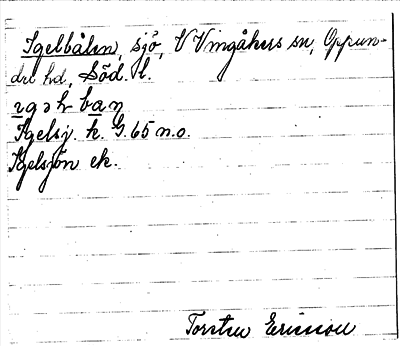 Igelbålen, sjö, V Vingåkers sn, Oppun-
dre hd, Söd. l.
Igelsj. k. G. 65 n.o.
Igelsjön ek.
Torsten Ericsson